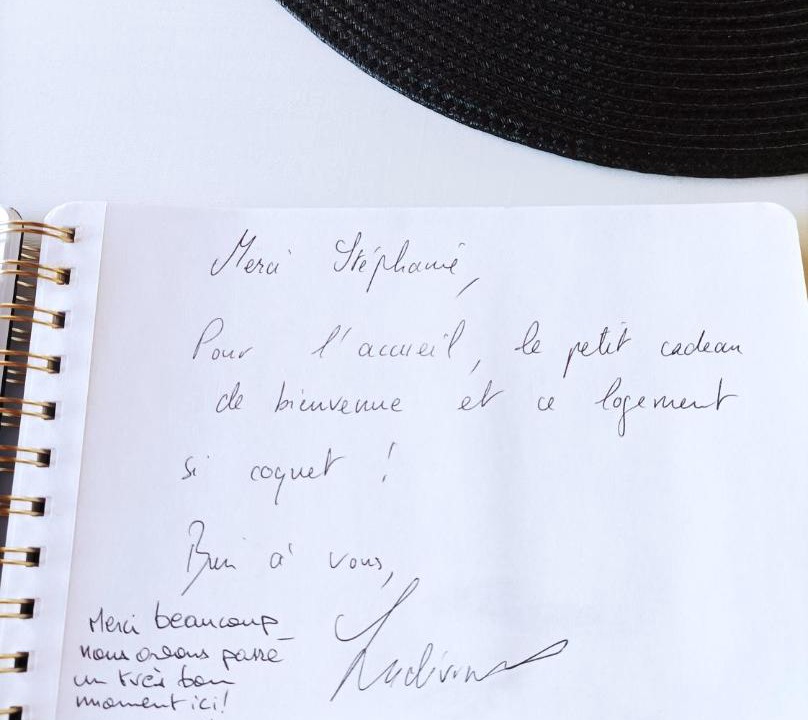 Merci Stéphanie,
Pour l'accueil, le petit cadeau
de bienvenue et ce logement
si coquet !
Bien à vous,
Ludivine
Merci beaucoup
nous avons passé
un très bon
moment ici!